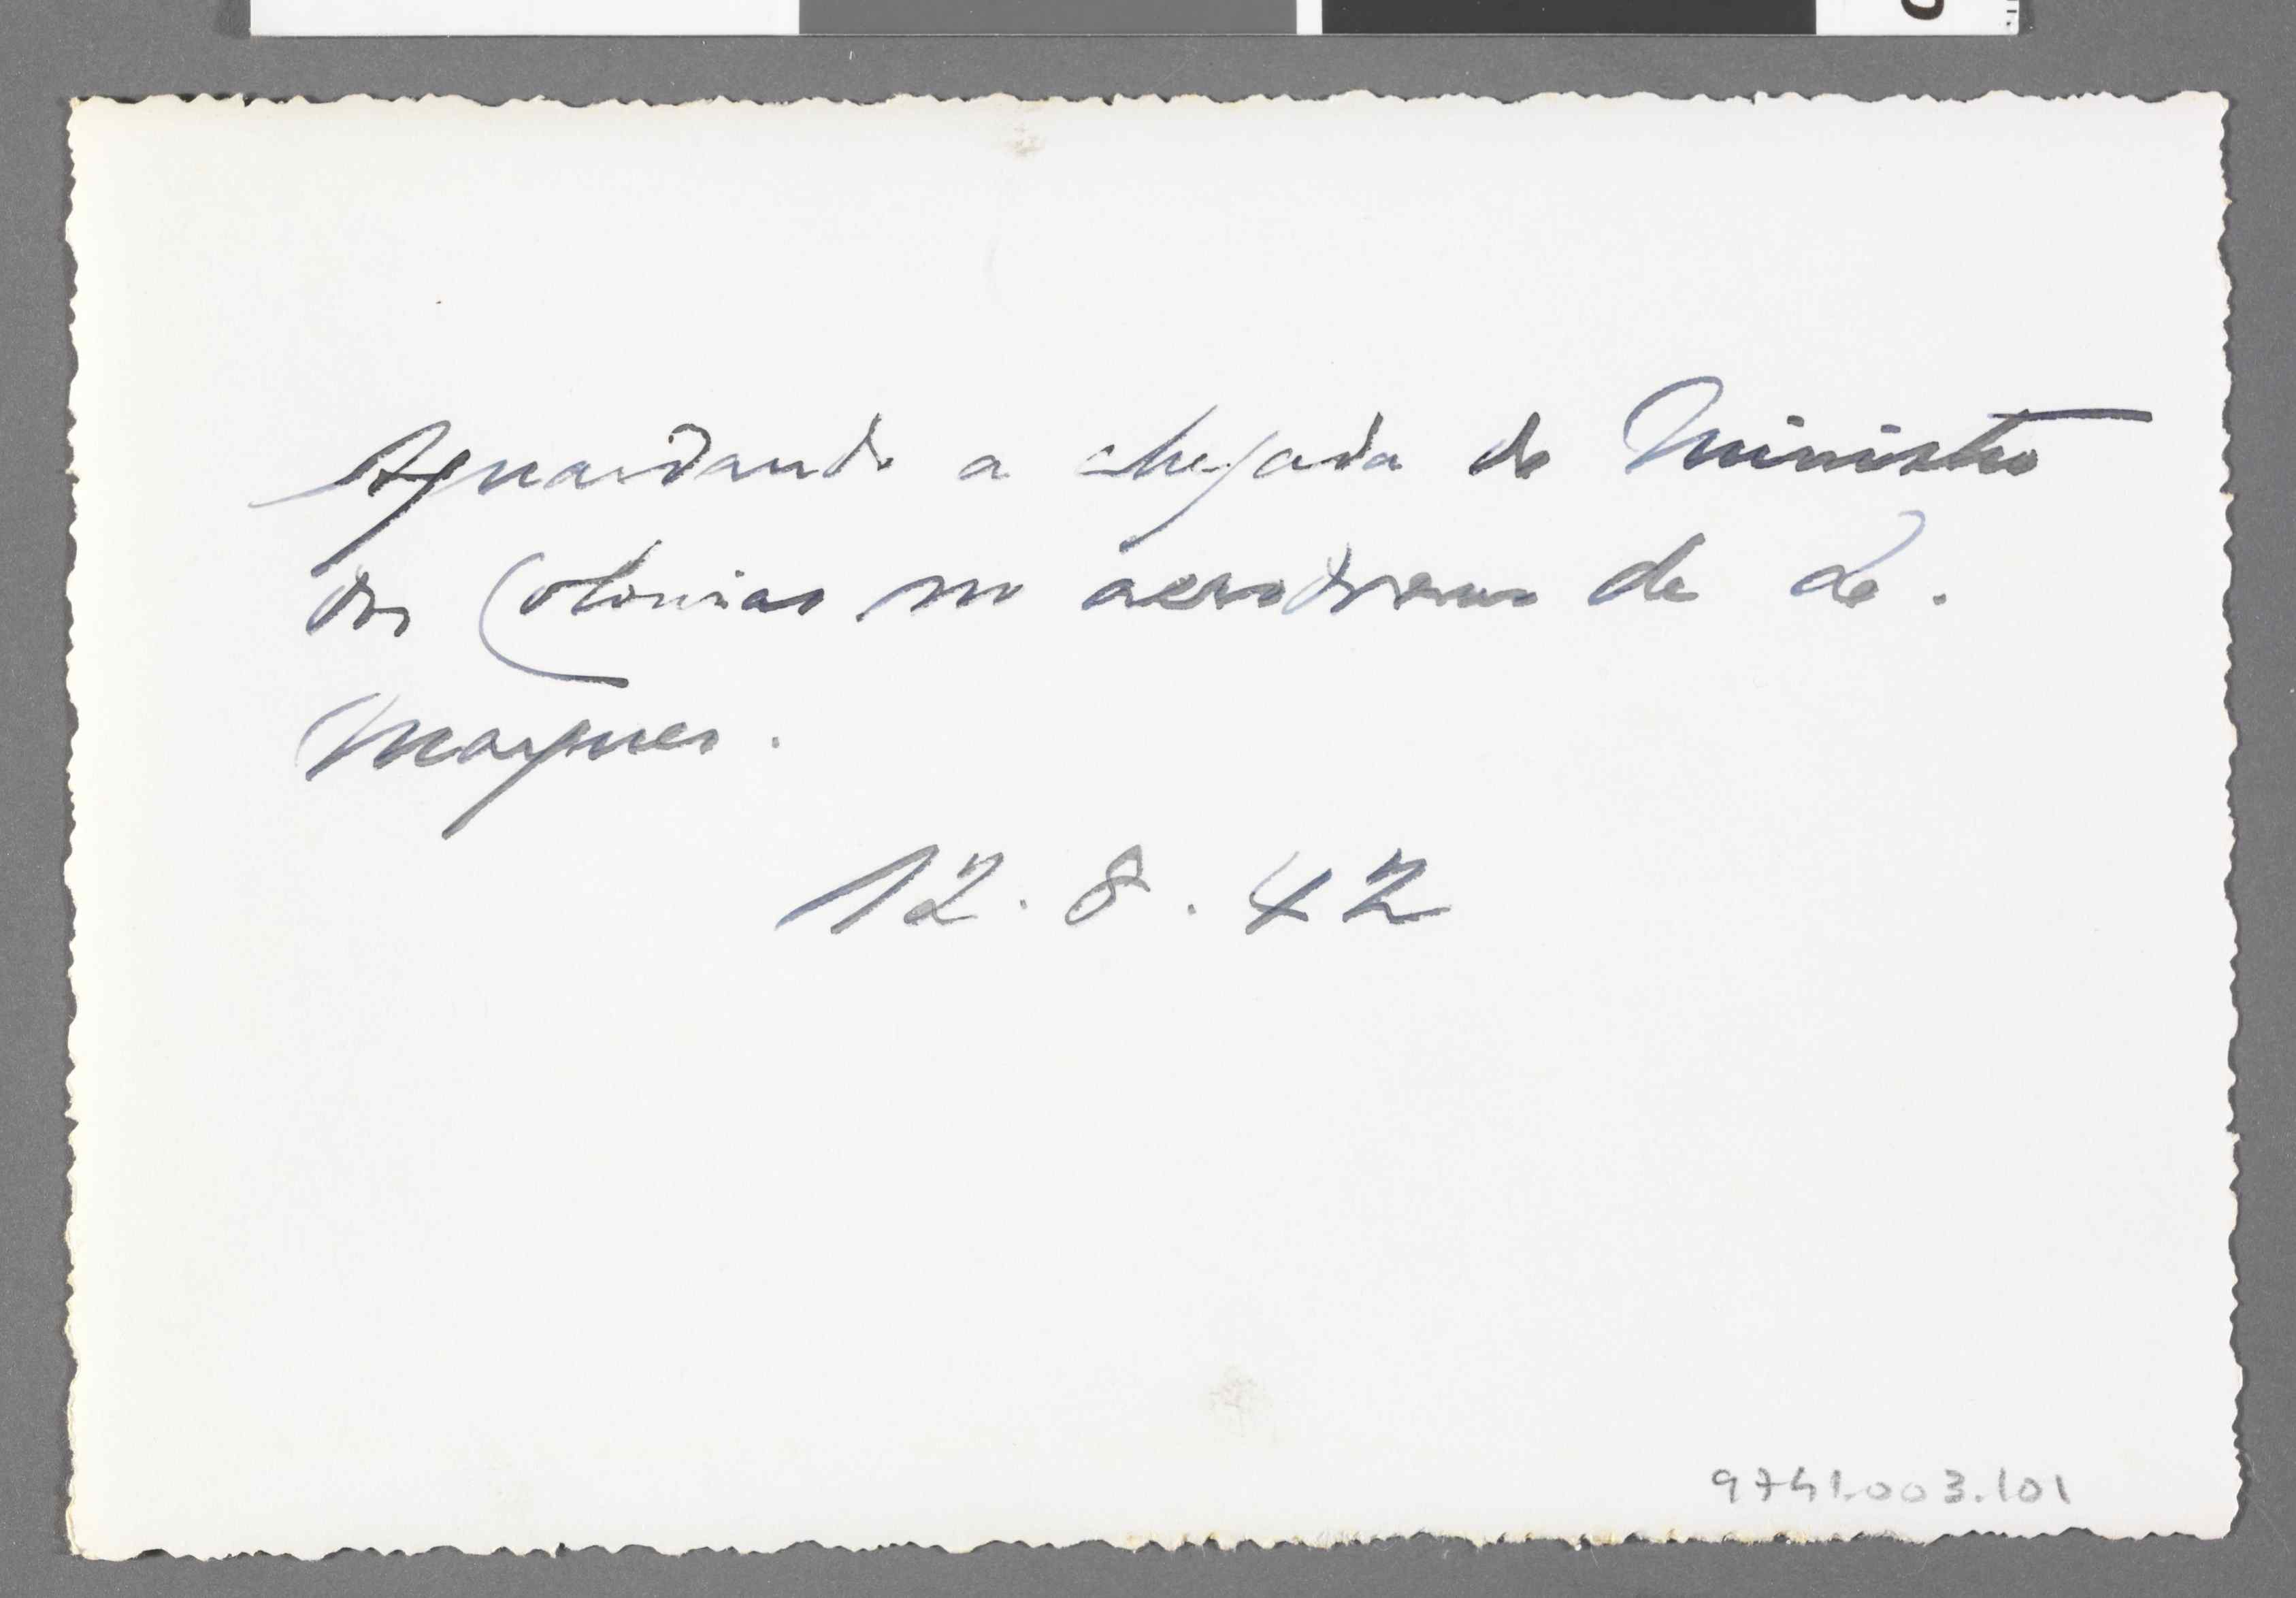 Aguardando a chegada do Ministro
das Colonias no aerodromo de L.
Marques.
12.8.42
9741.003.101